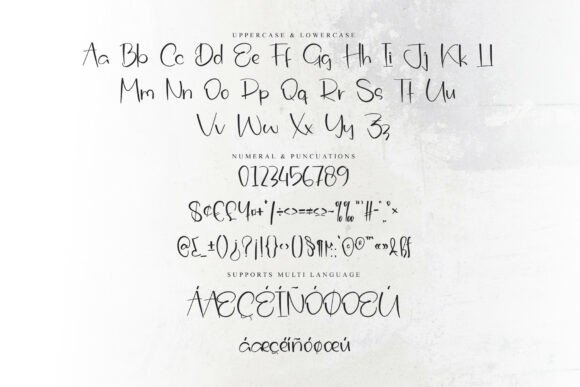 UPPERCASE & LOWERCASE
Aa Bb Cc Dd Ee Ff Gg Hh Ii Jj Kk Ll
Mm Nn Oo Pp Qq Rr Ss Tt Uu
Vv Ww Xx Yy Zz
NUMERAL & PUNCUATIONS
0123456789
$¢€£¥¤+*/÷<>=≠≤≥~%‰"'#-°„×
@Σ_±()¿?¡!{}‹›()§¶:;'©®™"«»
SUPPORTS MULTI LANGUAGE
ÁÆÇÉÍÑÓØŒÚ
áæçéíñóøœú